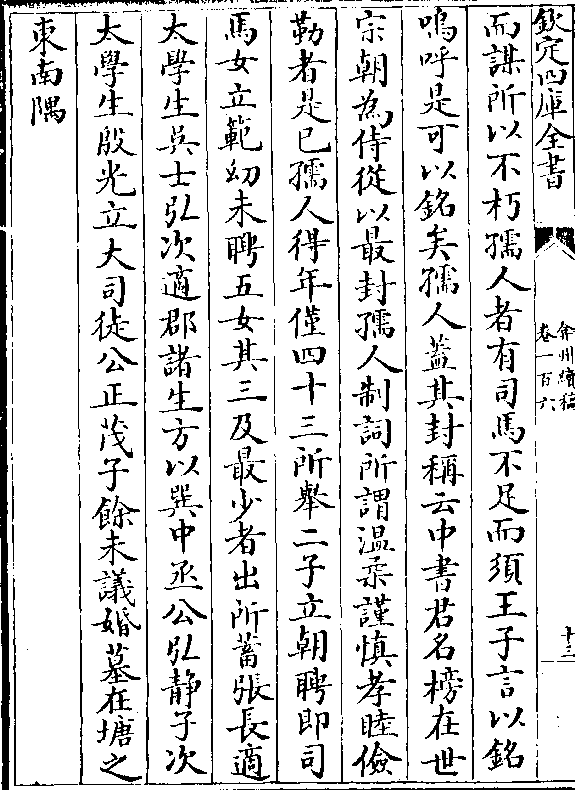 欽定四庫全書
弇州續稿
卷一百六
十三
而謀所以不朽孺人者有司馬不足而須王子言以銘
嗚呼是可以銘矣孺人蓋其封稱云中書君名榜在世
宗朝為侍從以最封孺人制詞所謂温柔謹慎孝睦儉
勤者是已孺人得年僅四十三所舉二子立朝聘即司
馬女立範幼未聘五女其三及最少者出所蓄張長適
太學生吳士弘次適郡諸生方以巽中丞公弘靜子次
太學生殷光立大司徒公正茂子餘未議婚墓在塘之
東南隅